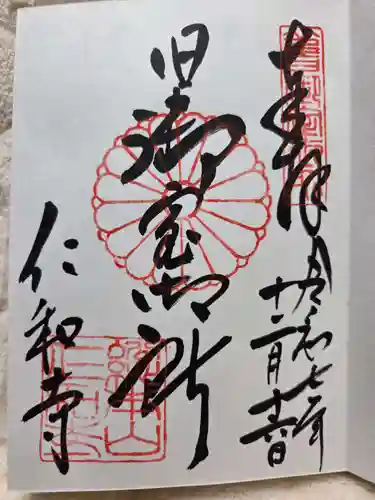 奉拝
令和七年
十二月十六日
旧御室御所
仁和寺